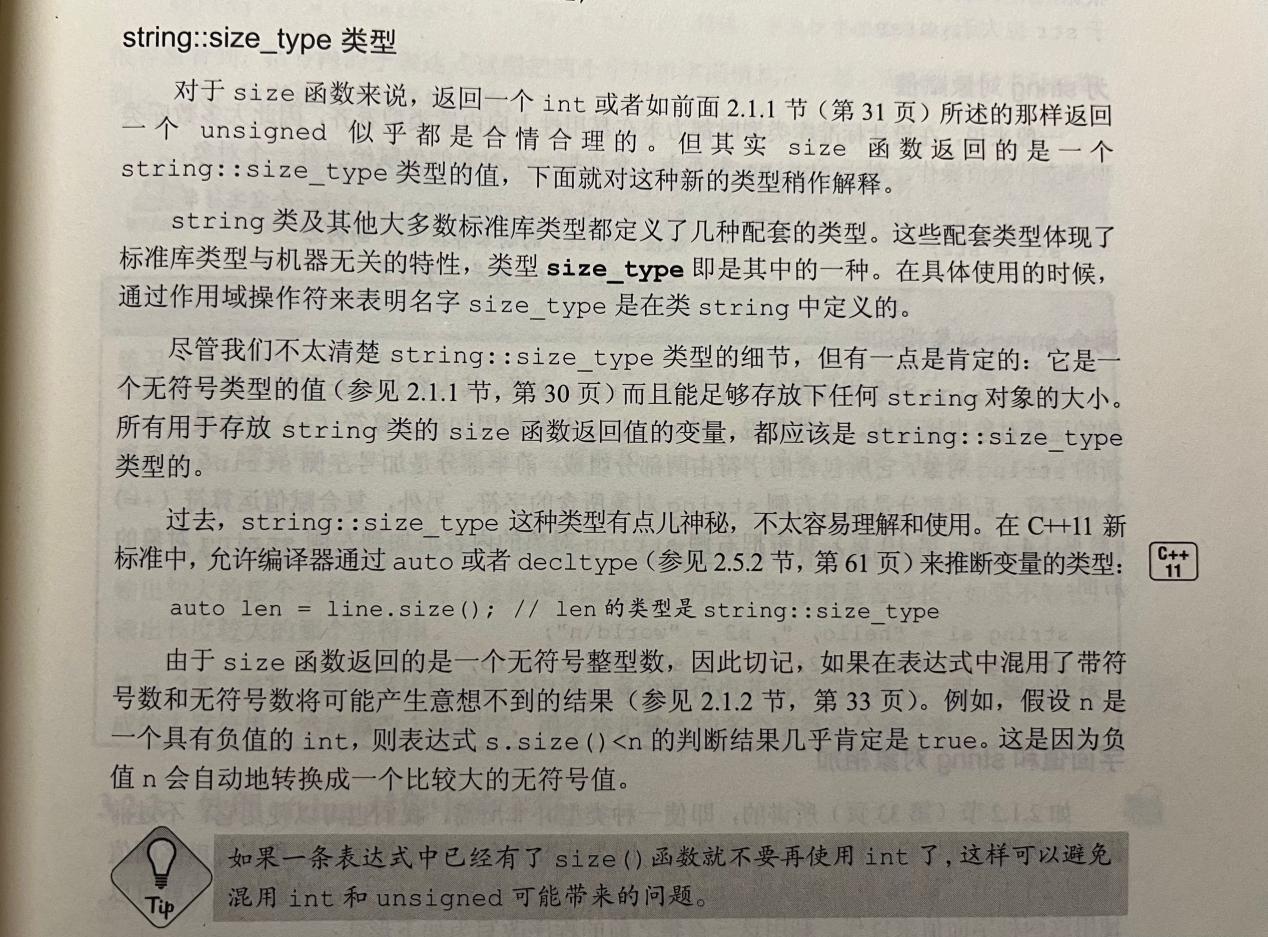 string::size_type 类型
对于 size 函数来说，返回一个 int 或者如前面 2.1.1 节（第 31 页）所述的那样返回
一个 unsigned 似乎都是合情合理的。但其实 size 函数返回的是一个
string::size_type 类型的值，下面就对这种新的类型稍作解释。
string 类及其他大多数标准库类型都定义了几种配套的类型。这些配套类型体现了
标准库类型与机器无关的特性，类型 size_type 即是其中的一种。在具体使用的时候，
通过作用域操作符来表明名字 size_type 是在类 string 中定义的。
尽管我们不太清楚 string::size_type 类型的细节，但有一点是肯定的：它是一
个无符号类型的值（参见 2.1.1 节，第 30 页）而且能足够存放下任何 string 对象的大小。
所有用于存放 string 类的 size 函数返回值的变量，都应该是 string::size_type
类型的。
过去，string::size_type 这种类型有点儿神秘，不太容易理解和使用。在 C++11 新
标准中，允许编译器通过 auto 或者 decltype（参见 2.5.2 节，第 61 页）来推断变量的类型：
C++
11
auto len = line.size(); // len 的类型是 string::size_type
由于 size 函数返回的是一个无符号整型数，因此切记，如果在表达式中混用了带符
号数和无符号数将可能产生意想不到的结果（参见 2.1.2 节，第 33 页）。例如，假设 n 是
一个具有负值的 int，则表达式 s.size()<n 的判断结果几乎肯定是 true。这是因为负
值 n 会自动地转换成一个比较大的无符号值。
Tip
如果一条表达式中已经有了 size()函数就不要再使用 int 了，这样可以避免
混用 int 和 unsigned 可能带来的问题。